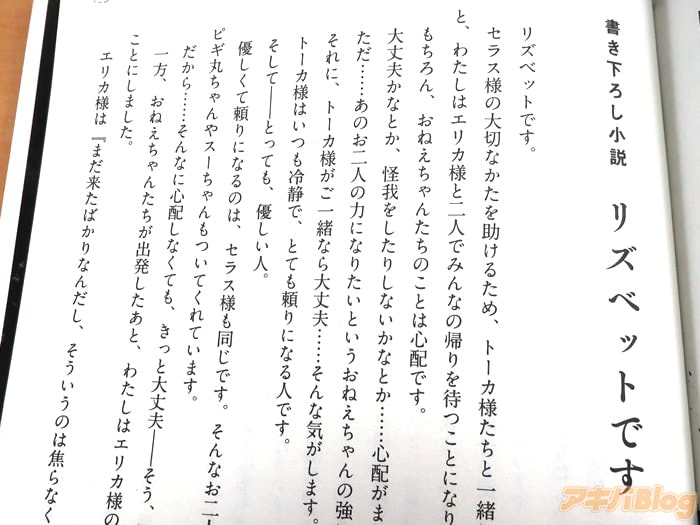 書き下ろし小説 リズベットです
リズベットです。
セラス様の大切なかたを助けるため、トーカ様たちと一緒
と、わたしはエリカ様と二人でみんなの帰りを待つことになり
もちろん、おねえちゃんたちのことは心配です。
大丈夫かなとか、怪我をしたりしないかなとか……心配がま
ただ……あのお二人の力になりたいというおねえちゃんの強
それに、トーカ様がご一緒なら大丈夫……そんな気がします。
トーカ様はいつも冷静で、とても頼りになる人です。
そして――とっても、優しい人。
優しくて頼りになるのは、セラス様も同じです。そんなお二
ピギ丸ちゃんやスーちゃんもついてくれています。
だから……そんなに心配しなくても、きっと大丈夫――そう、
一方、おねえちゃんたちが出発したあと、わたしはエリカ様の
ことにしました。
エリカ様は『まだ来たばかりなんだし、そういうのは焦らなく
アキバBlog